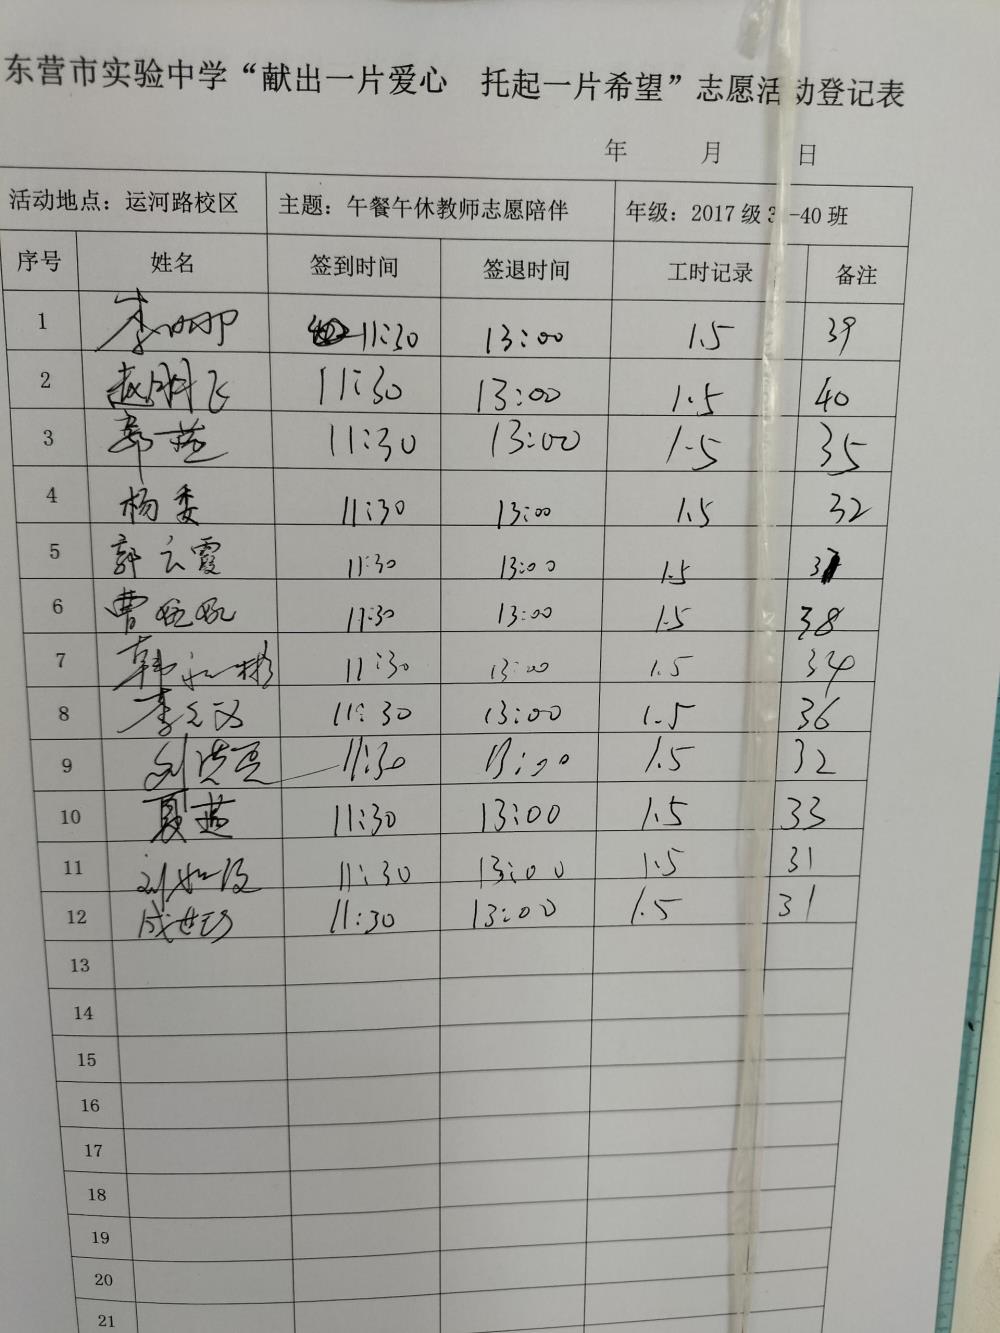 东营市实验中学“献出一片爱心 托起一片希望”志愿活动登记表
年 月 日
活动地点：运河路校区 主题：午餐午休教师志愿陪伴 年级：2017级3 -40班
序号 姓名 签到时间 签退时间 工时记录 备注
1 李 11:30 13:00 1.5 39
2 赵鹏飞 11:30 13:00 1.5 40
3 11:30 13:00 1.5 35
4 杨委 11:30 13:00 1.5 32
5 郭云霞 11:30 13:00 1.5 37
6 曹 11:30 13:00 1.5 38
7 韩 彬 11:30 13:00 1.5 34
8 李 11:30 13:00 1.5 36
9 刘 11:30 13:00 1.5 32
10 夏燕 11:30 13:00 1.5 33
11 刘 11:30 13:00 1.5 31
12 成世 11:30 13:00 1.5 31
13
14
15
16
17
18
19
20
21